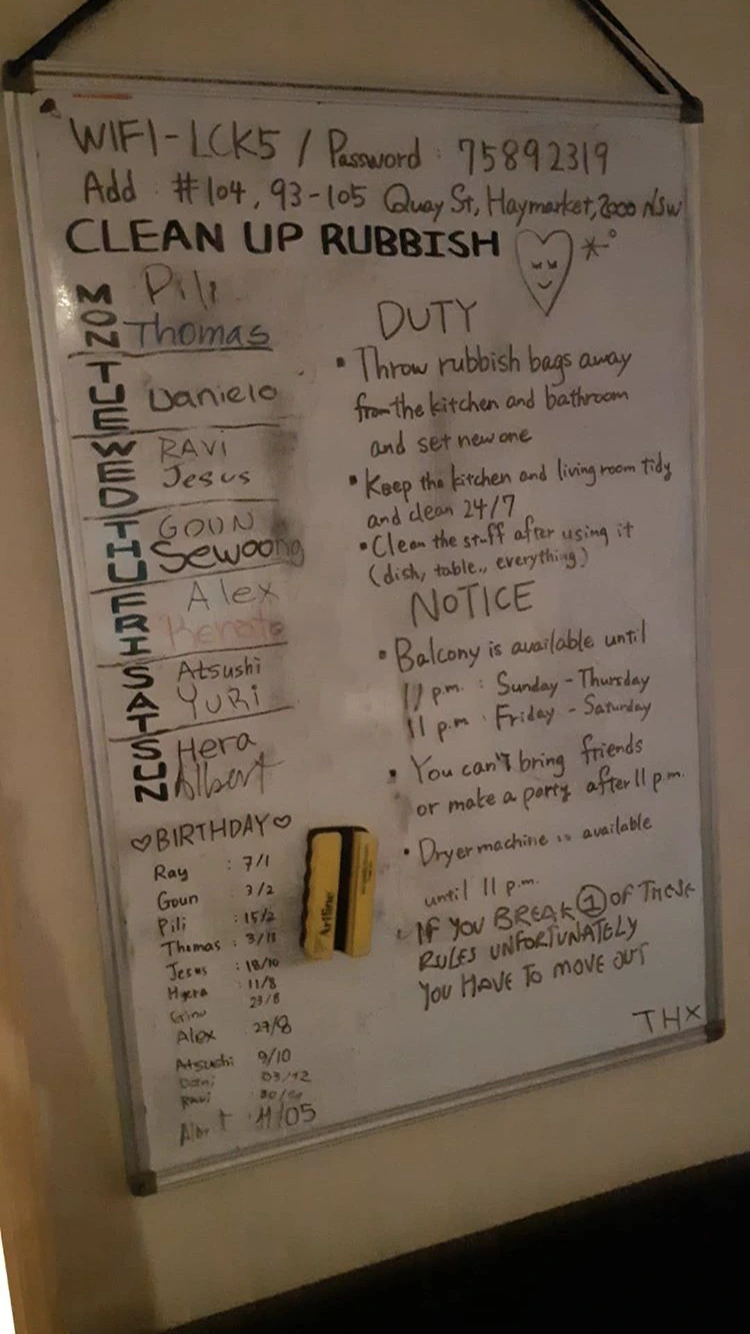 WIFI-LCK5 / Password : 75892319
Add : #104, 93-105 Quay St, Haymarket, 2000 NSW
CLEAN UP RUBBISH
MON
Pili
Thomas
TUE
Danielo
WED
RAVI
Jesus
THU
GOUN
Sewoong
FRI
Alex
Renato
SAT
Atsushi
YURi
SUN
Hera
Albert
♡BIRTHDAY♡
Ray : 7/1
Goun 3/2
Pili : 15/2
Thomas : 3/11
Jesus : 18/10
Hyera : 11/8
23/6
Alex 27/8
Atsushi 9/10
Dani 03/12
Ravi
11/05
DUTY
• Throw rubbish bags away
from the kitchen and bathroom
and set new one
• Keep the kitchen and living room tidy
and clean 24/7
• Clean the stuff after using it
(dish, table.., everything)
NOTICE
• Balcony is available until
11 p.m. : Sunday - Thursday
11 p.m : Friday - Saturday
• You can't bring friends
or make a party after 11 p.m.
• Dryer machine is available
until 11 p.m.
• IF YOU BREAK ① OF THESE
RULES UNFORTUNATELY
YOU HAVE TO MOVE OUT
THX
Artline